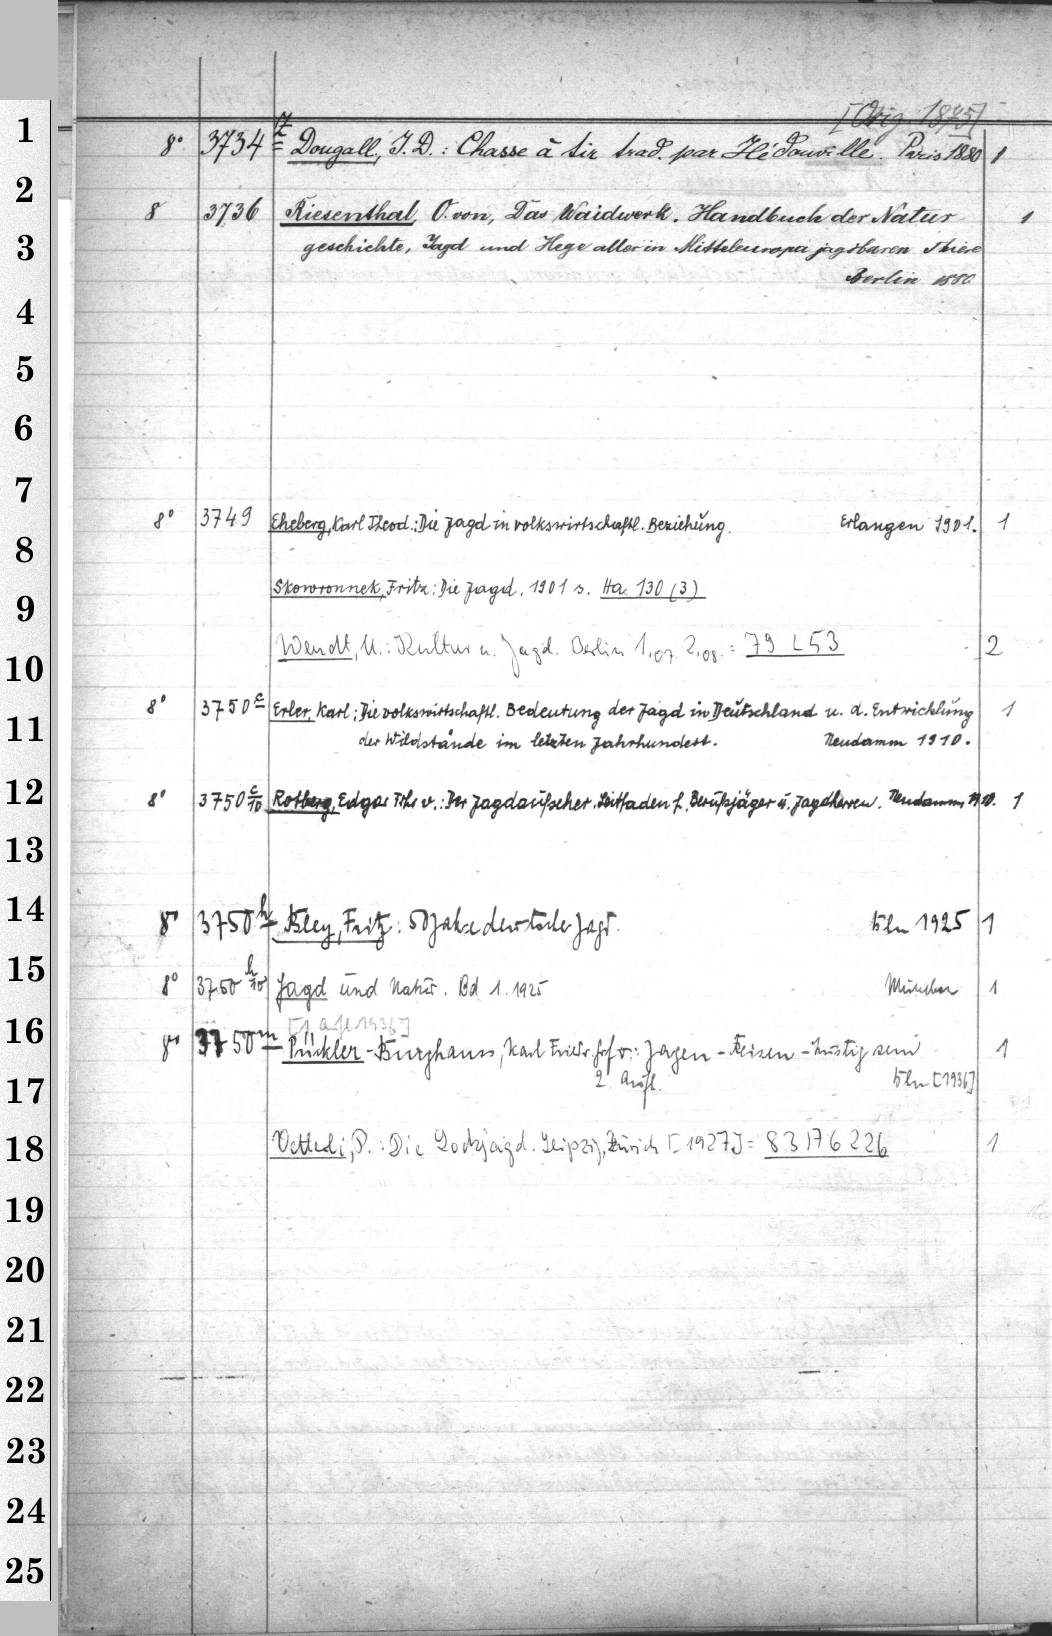 [Orig. 1875]
8° 3734 z Dougall, J. D.: Chasse à tir trad. par Hédouville. Paris 1880 1
8 3736 Riesenthal, O. von, Das Waidwerk. Handbuch der Natur- 1
geschichte, Jagd und Hege aller in Mitteleuropa jagdbaren Thiere
Berlin 1880
8° 3749 Eheberg, Karl Theod.: Die Jagd in volkswirtschaftl. Beziehung. Erlangen 1901. 1
Skowronnek, Fritz: Die Jagd. 1901 s. Ha. 130 (3)
Wendt, U.: Kultur u. Jagd. Berlin 1,07. 2,08. = 79 L 53 2
8° 3750 c Erler, Karl: Die volkswirtschaftl. Bedeutung der Jagd in Deutschland u. d. Entwicklung 1
der Wildstände im letzten Jahrhundert. Neudamm 1910.
8° 3750 c/10 Rotberg, Edgar Frhr v.: Der Jagdaufseher. Leitfaden f. Berufsjäger u. Jagdherren. Neudamm 1910. 1
8° 3750 h Bley, Fritz: 50 Jahre deutscher Jagd. Bln 1925 1
8° 3750 h/10 Jagd und Natur. Bd 1. 1925 München 1
[1. Aufl. 1936]
8° 3750 m Pückler-Burghauss, Karl Friedr. v.: Jagen - Reisen - Lustig sein 1
2. Aufl. Bln [1936]
Vetterli, P.: Die Lockjagd. Leipzig, Zürich [1927] = 83 176 226 1
1
2
3
4
5
6
7
8
9
10
11
12
13
14
15
16
17
18
19
20
21
22
23
24
25